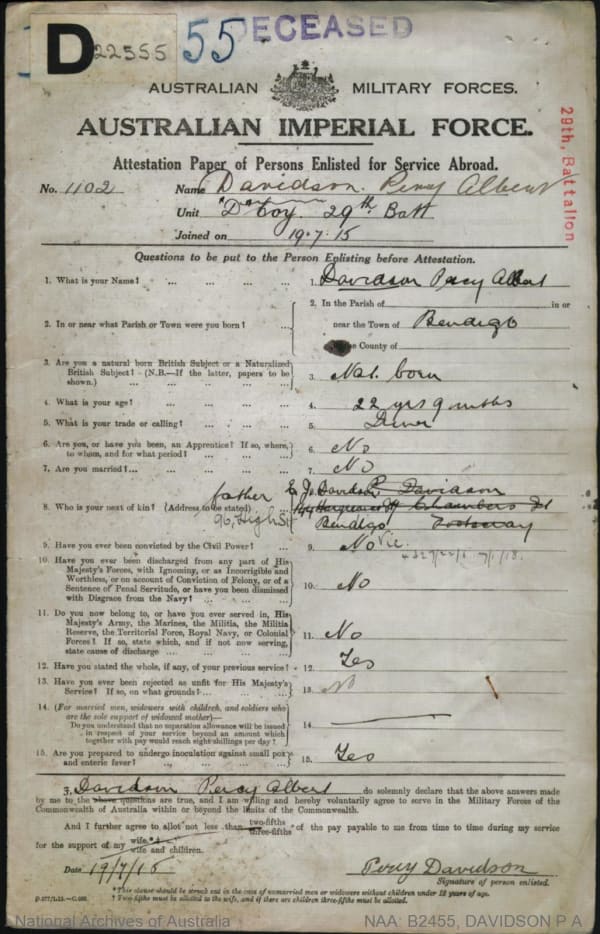 D 22555 55 DECEASED
AUSTRALIAN MILITARY FORCES.
AUSTRALIAN IMPERIAL FORCE.
29th, Battalion
Attestation Paper of Persons Enlisted for Service Abroad.
No. 1102 Name Davidson. Percy Albert
Unit "D" Coy. 29th Batt
Joined on 19.7.15
Questions to be put to the Person Enlisting before Attestation.
1. What is your Name? ... ... ... ... 1. Davidson Percy Albert
2. In or near what Parish or Town were you born? ... 2. In the Parish of in or
near the Town of Bendigo
County of
3. Are you a natural born British Subject or a Naturalized
British Subject? (N.B.—If the latter, papers to be
shown.) ... ... ... ... 3. Nat. born
4. What is your age? ... ... ... ... 4. 22 yrs 9 mnths
5. What is your trade or calling? ... ... ... 5.
6. Are you, or have you been, an Apprentice? If so, where,
to whom, and for what period? ... ... ... 6. No
7. Are you married? ... ... ... ... 7. No
8. Who is your next of kin? (Address to be stated) father E. J. Davidson Davidson
96, High St Chambers St
Bendigo Footscray
Vic.
9. Have you ever been convicted by the Civil Power? ... 9. No
10. Have you ever been discharged from any part of His
Majesty's Forces, with Ignominy, or as Incorrigible and
Worthless, or on account of Conviction of Felony, or of a
Sentence of Penal Servitude, or have you been dismissed
with Disgrace from the Navy? ... ... 10. No
11. Do you now belong to, or have you ever served in, His
Majesty's Army, the Marines, the Militia, the Militia
Reserve, the Territorial Force, Royal Navy, or Colonial
Forces? If so, state which, and if not now serving,
state cause of discharge ... ... ... 11. No
12. Have you stated the whole, if any, of your previous service? 12. Yes
13. Have you ever been rejected as unfit for His Majesty's
Service? If so, on what grounds? ... ... ... 13. No
14. (For married men, widowers with children, and soldiers who
are the sole support of widowed mother)—
Do you understand that no separation allowance will be issued
in respect of your service beyond an amount which
together with pay would reach eight shillings per day? 14.
15. Are you prepared to undergo inoculation against small pox
and enteric fever? ... ... ... 15. Yes
I, Davidson Percy Albert do solemnly declare that the above answers made
by me to the above questions are true, and I am willing and hereby voluntarily agree to serve in the Military Forces of the
Commonwealth of Australia within or beyond the limits of the Commonwealth.
And I further agree to allot not less than two-fifths three-fifths of the pay payable to me from time to time during my service
for the support of my wife* † wife and children.
Date 19/7/15 Percy Davidson
Signature of person enlisted.
* This clause should be struck out in the case of unmarried men or widowers without children under 18 years of age.
† Two-fifths must be allotted to the wife, and if there are children three-fifths must be allotted.
National Archives of Australia NAA: B2455, DAVIDSON P A